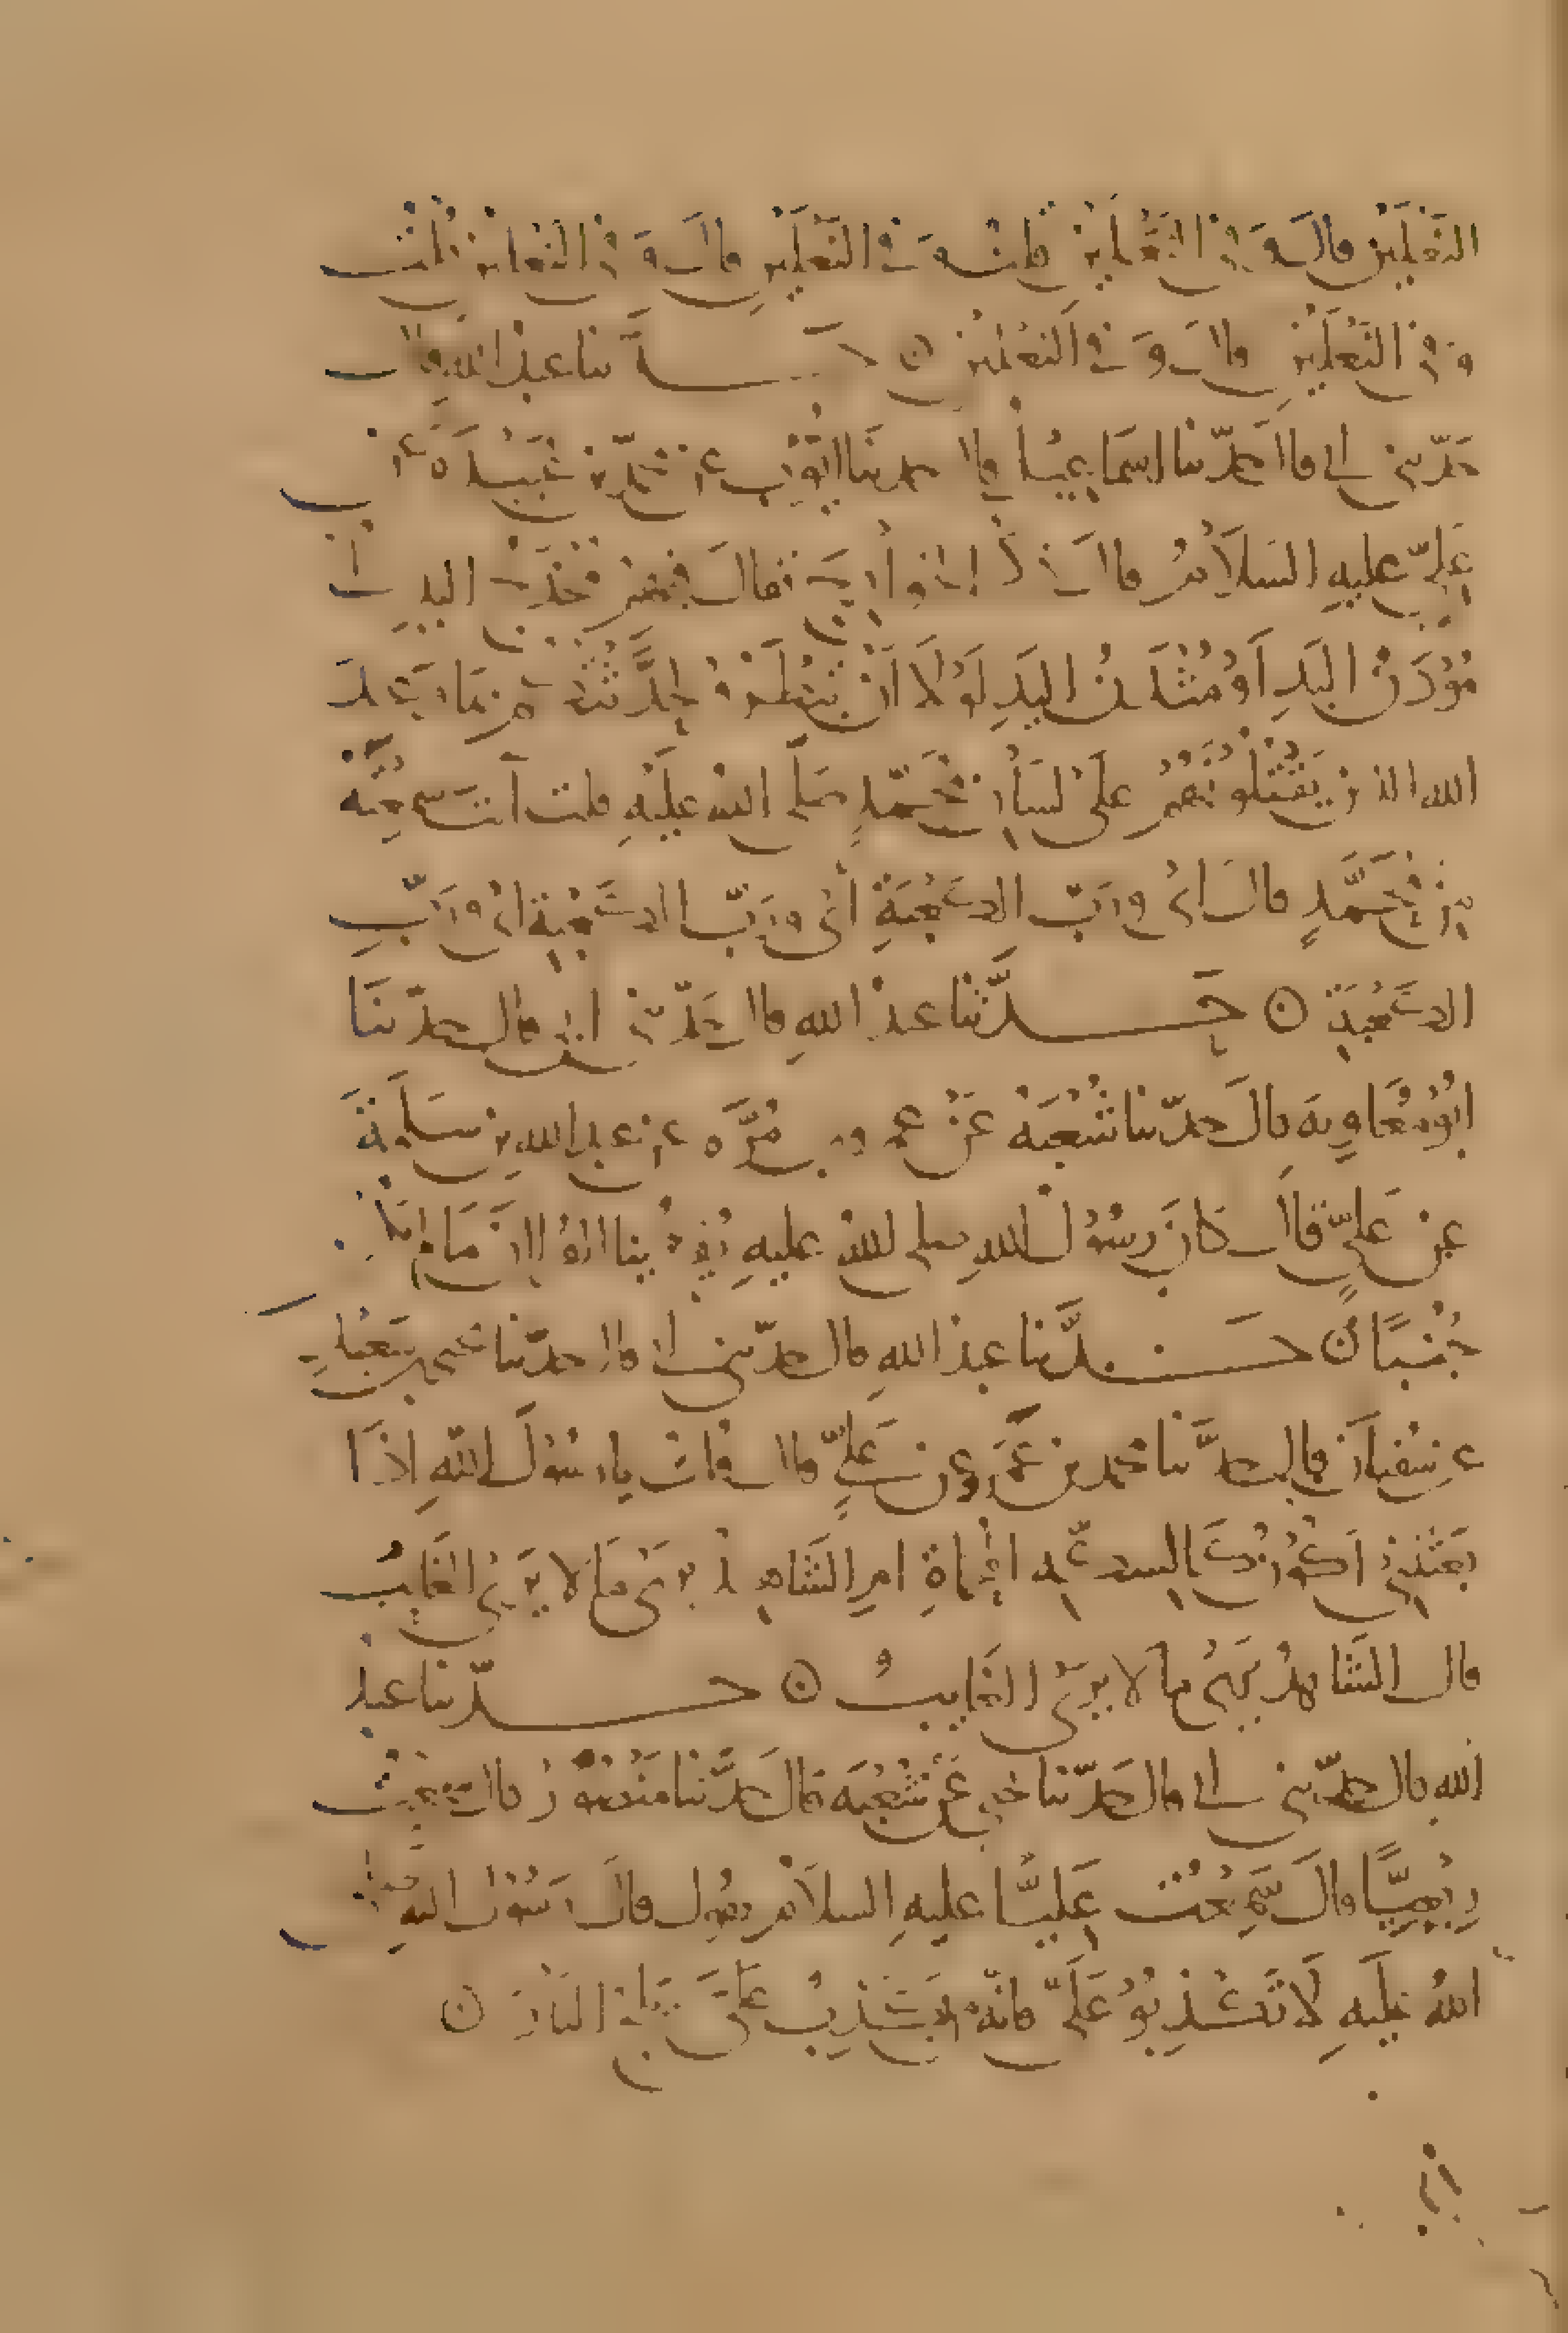 النعلين قال وفي النعلين قلت وفي النعلين قال وفي النعلين قلت
وفي النعلين قال وفي النعلين ۞ حدثنا عبد الله قال
حدثني ابي قال حدثنا اسماعيل قال حدثنا ايوب عن محمد عن عبيدة عن
علي عليه السلام قال ذكر الخوارج فقال فيهم مخدج اليد او
مودن اليد او مثدن اليد لولا ان تبطروا لحدثتكم بما وعد
الله الذين يقتلونهم على لسان محمد صلى الله عليه قلت أنت سمعته
من محمد قال اي ورب الكعبة اي ورب الكعبة اي ورب
الكعبة ۞ حدثنا عبد الله قال حدثني ابي قال حدثنا
ابو معاوية قال حدثنا شعبة عن عمرو بن مرة عن عبد الله بن سلمة
عن علي قال كان رسول الله صلى الله عليه يقرئنا القران ما لم يكن
جنبا ۞ حدثنا عبد الله قال حدثني ابي قال حدثنا يحيى بن سعيد
عن سفيان قال حدثنا محمد بن عمر عن علي قال قلت يا رسول الله اذا
بعثتني اكون كالسكة المحماة ام الشاهد يرى ما لا يرى الغايب
قال الشاهد يرى ما لا يرى الغايب ۞ حدثنا عبد
الله قال حدثني ابي قال حدثنا يحيى عن شعبة قال حدثنا منصور قال سمعت
ربعيا قال سمعت عليا عليه السلام يقول قال رسول الله صلى
الله عليه لا تكذبوا علي فانه من يكذب علي يلج النار ۞